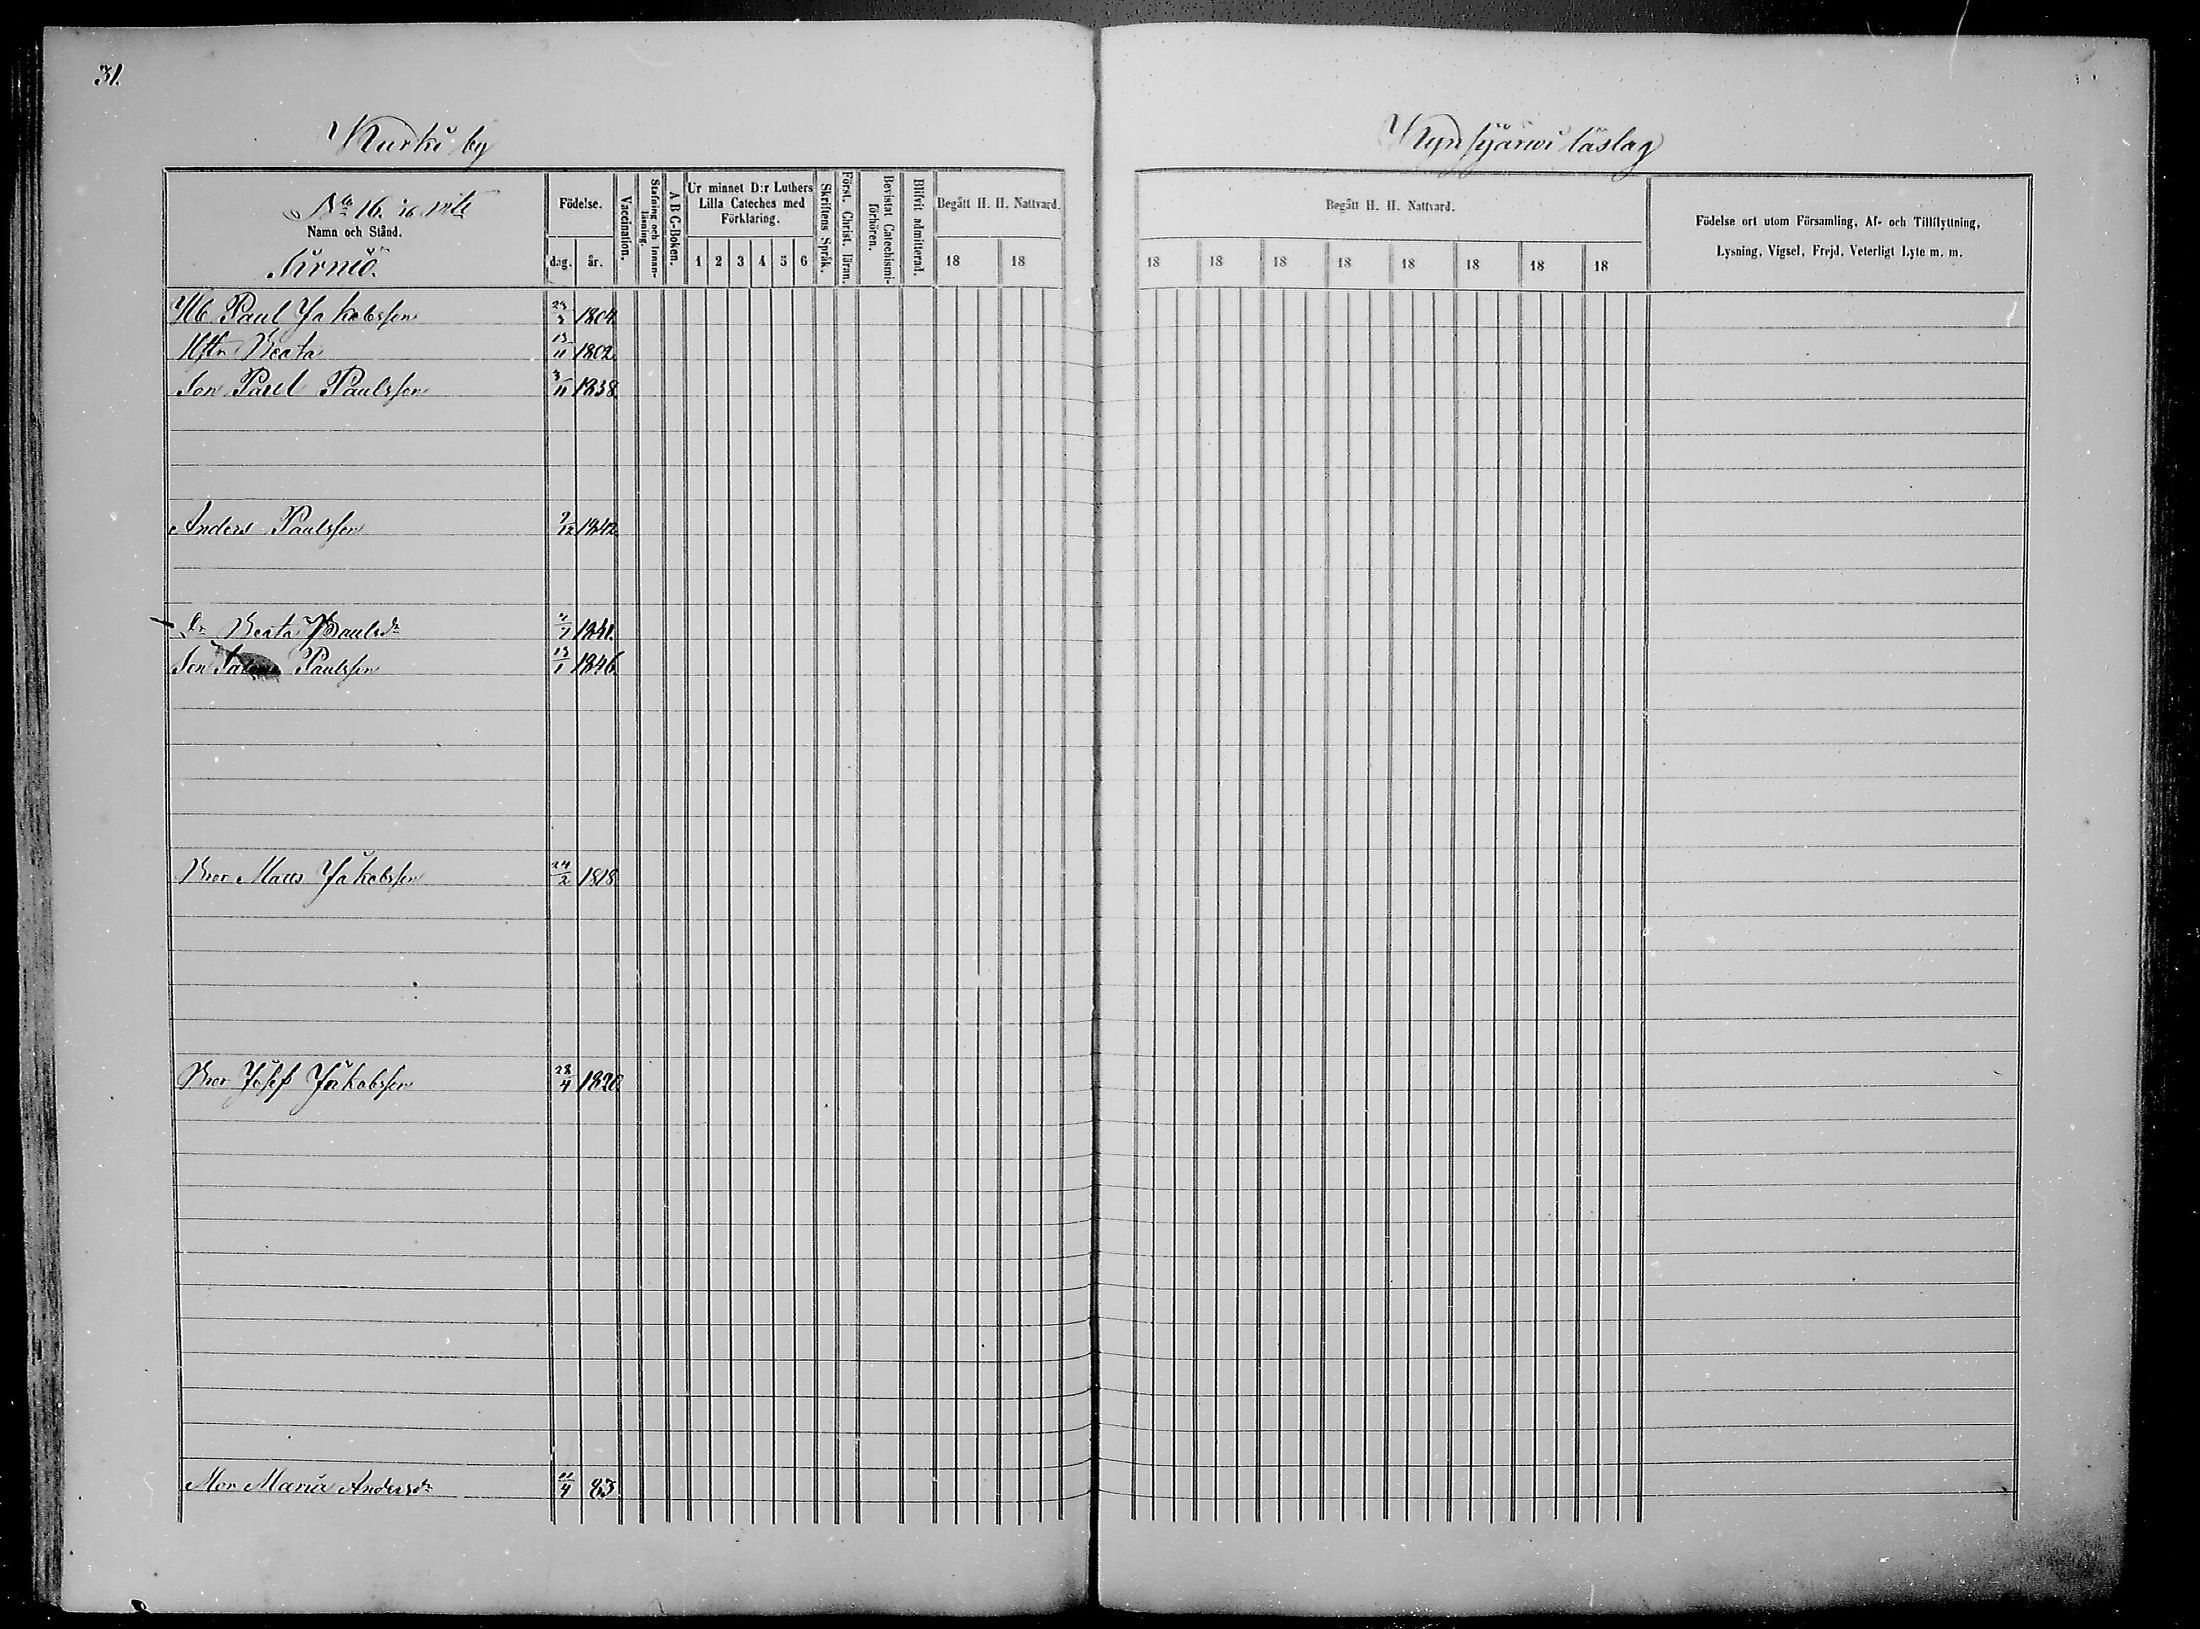 31.
Kurki by
No 16. 7/16 mtl
Namn och Stånd.
Sirniö.
Födelse.
dag. år.
Vaccination.
Stafning och Innanläsning.
A B C-Boken.
Ur minnet D:r Luthers Lilla Cateches med Förklaring.
1 2 3 4 5 6
Skriftens Språk.
Först. Christ. läran.
Bevistat Catechismiförhören.
Blifvit admitterad.
Begått H. H. Nattvard.
18 18
Hb. Paul Jakobsson 1804
Hstr. Beata 13/11 1802
Son Paul Paulsson 3/11 1838
Anders Paulsson 7/12 1842
Dr Beata Paulsdr
Son Paulsson 13/1 1846
Bror Matts Jakobsson 24/2 1818
Bror Josef Jakobsson 28/4 1820
Mor Maria Andersdr 11/4 83
läslag
Begått H. H. Nattvard.
18 18 18 18 18 18 18 18
Födelse ort utom Församling, Af- och Tillflyttning,
Lysning, Vigsel, Frejd, Veterligt Lyte m. m.